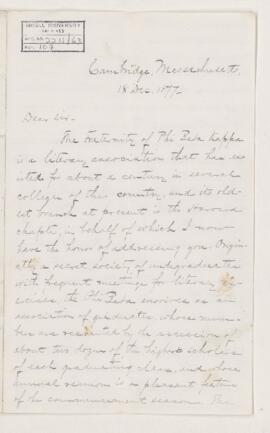 McGILL UNIVERSITY
ARCHIVES
ACC. NO. 2211/63
REF. 107
Cambridge, Massachusetts,
18 Dec. 1877.
Dear Sir-
The Fraternity of Phi Beta Kappa
is a literary association that has ex
isted for about a century in several
colleges of this country, and its old-
est branch at present is the Harvard
chapter, in behalf of which I now
have the honor of addressing you. Origin-
ally a secret society of undergraduates
with frequent meetings for literary exer-
cises, the Phi Beta survives as an
association of graduates, whose num-
bers are recruited by the accession of
about two dozen of the highest scholars
of each graduating class, and whose
annual reunion is a pleasant feature
of the commencement season. The